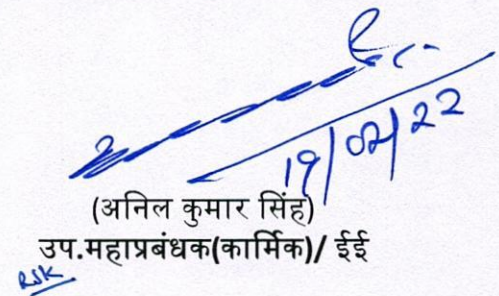 19/02/22
(अनिल कुमार सिंह)
उप.महाप्रबंधक(कार्मिक)/ ईई
RSK